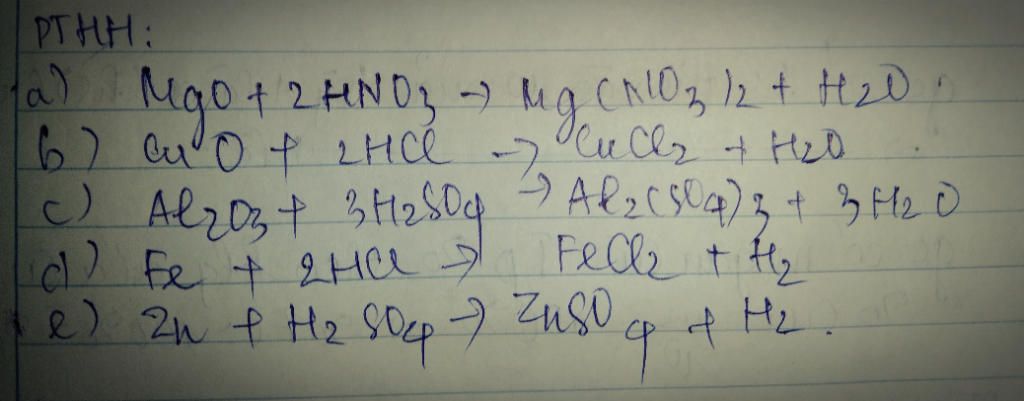 PTHH:
a) MgO + 2HNO3 → Mg(NO3)2 + H2O.
b) CuO + 2HCl → CuCl2 + H2O
c) Al2O3 + 3H2SO4 → Al2(SO4)3 + 3H2O
d) Fe + 2HCl → FeCl2 + H2
e) Zn + H2SO4 → ZnSO4 + H2.